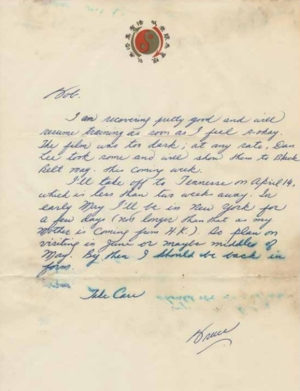 Bob.
I am recovering pretty good and will
resume training as soon as I feel okay.
The film was too dark; at any rate, Dan
Lee took some and will show them to Black
Belt mag. this coming week.
I'll take off to Tennesse on April 14,
which is less than two weeks away. In
early May I'll be in New York for
a few days (not longer than that as my
Mother is coming from H.K.). So plan on
visiting in June or maybe middles of
May. By then I should be back in
form.
Take Care
Bruce